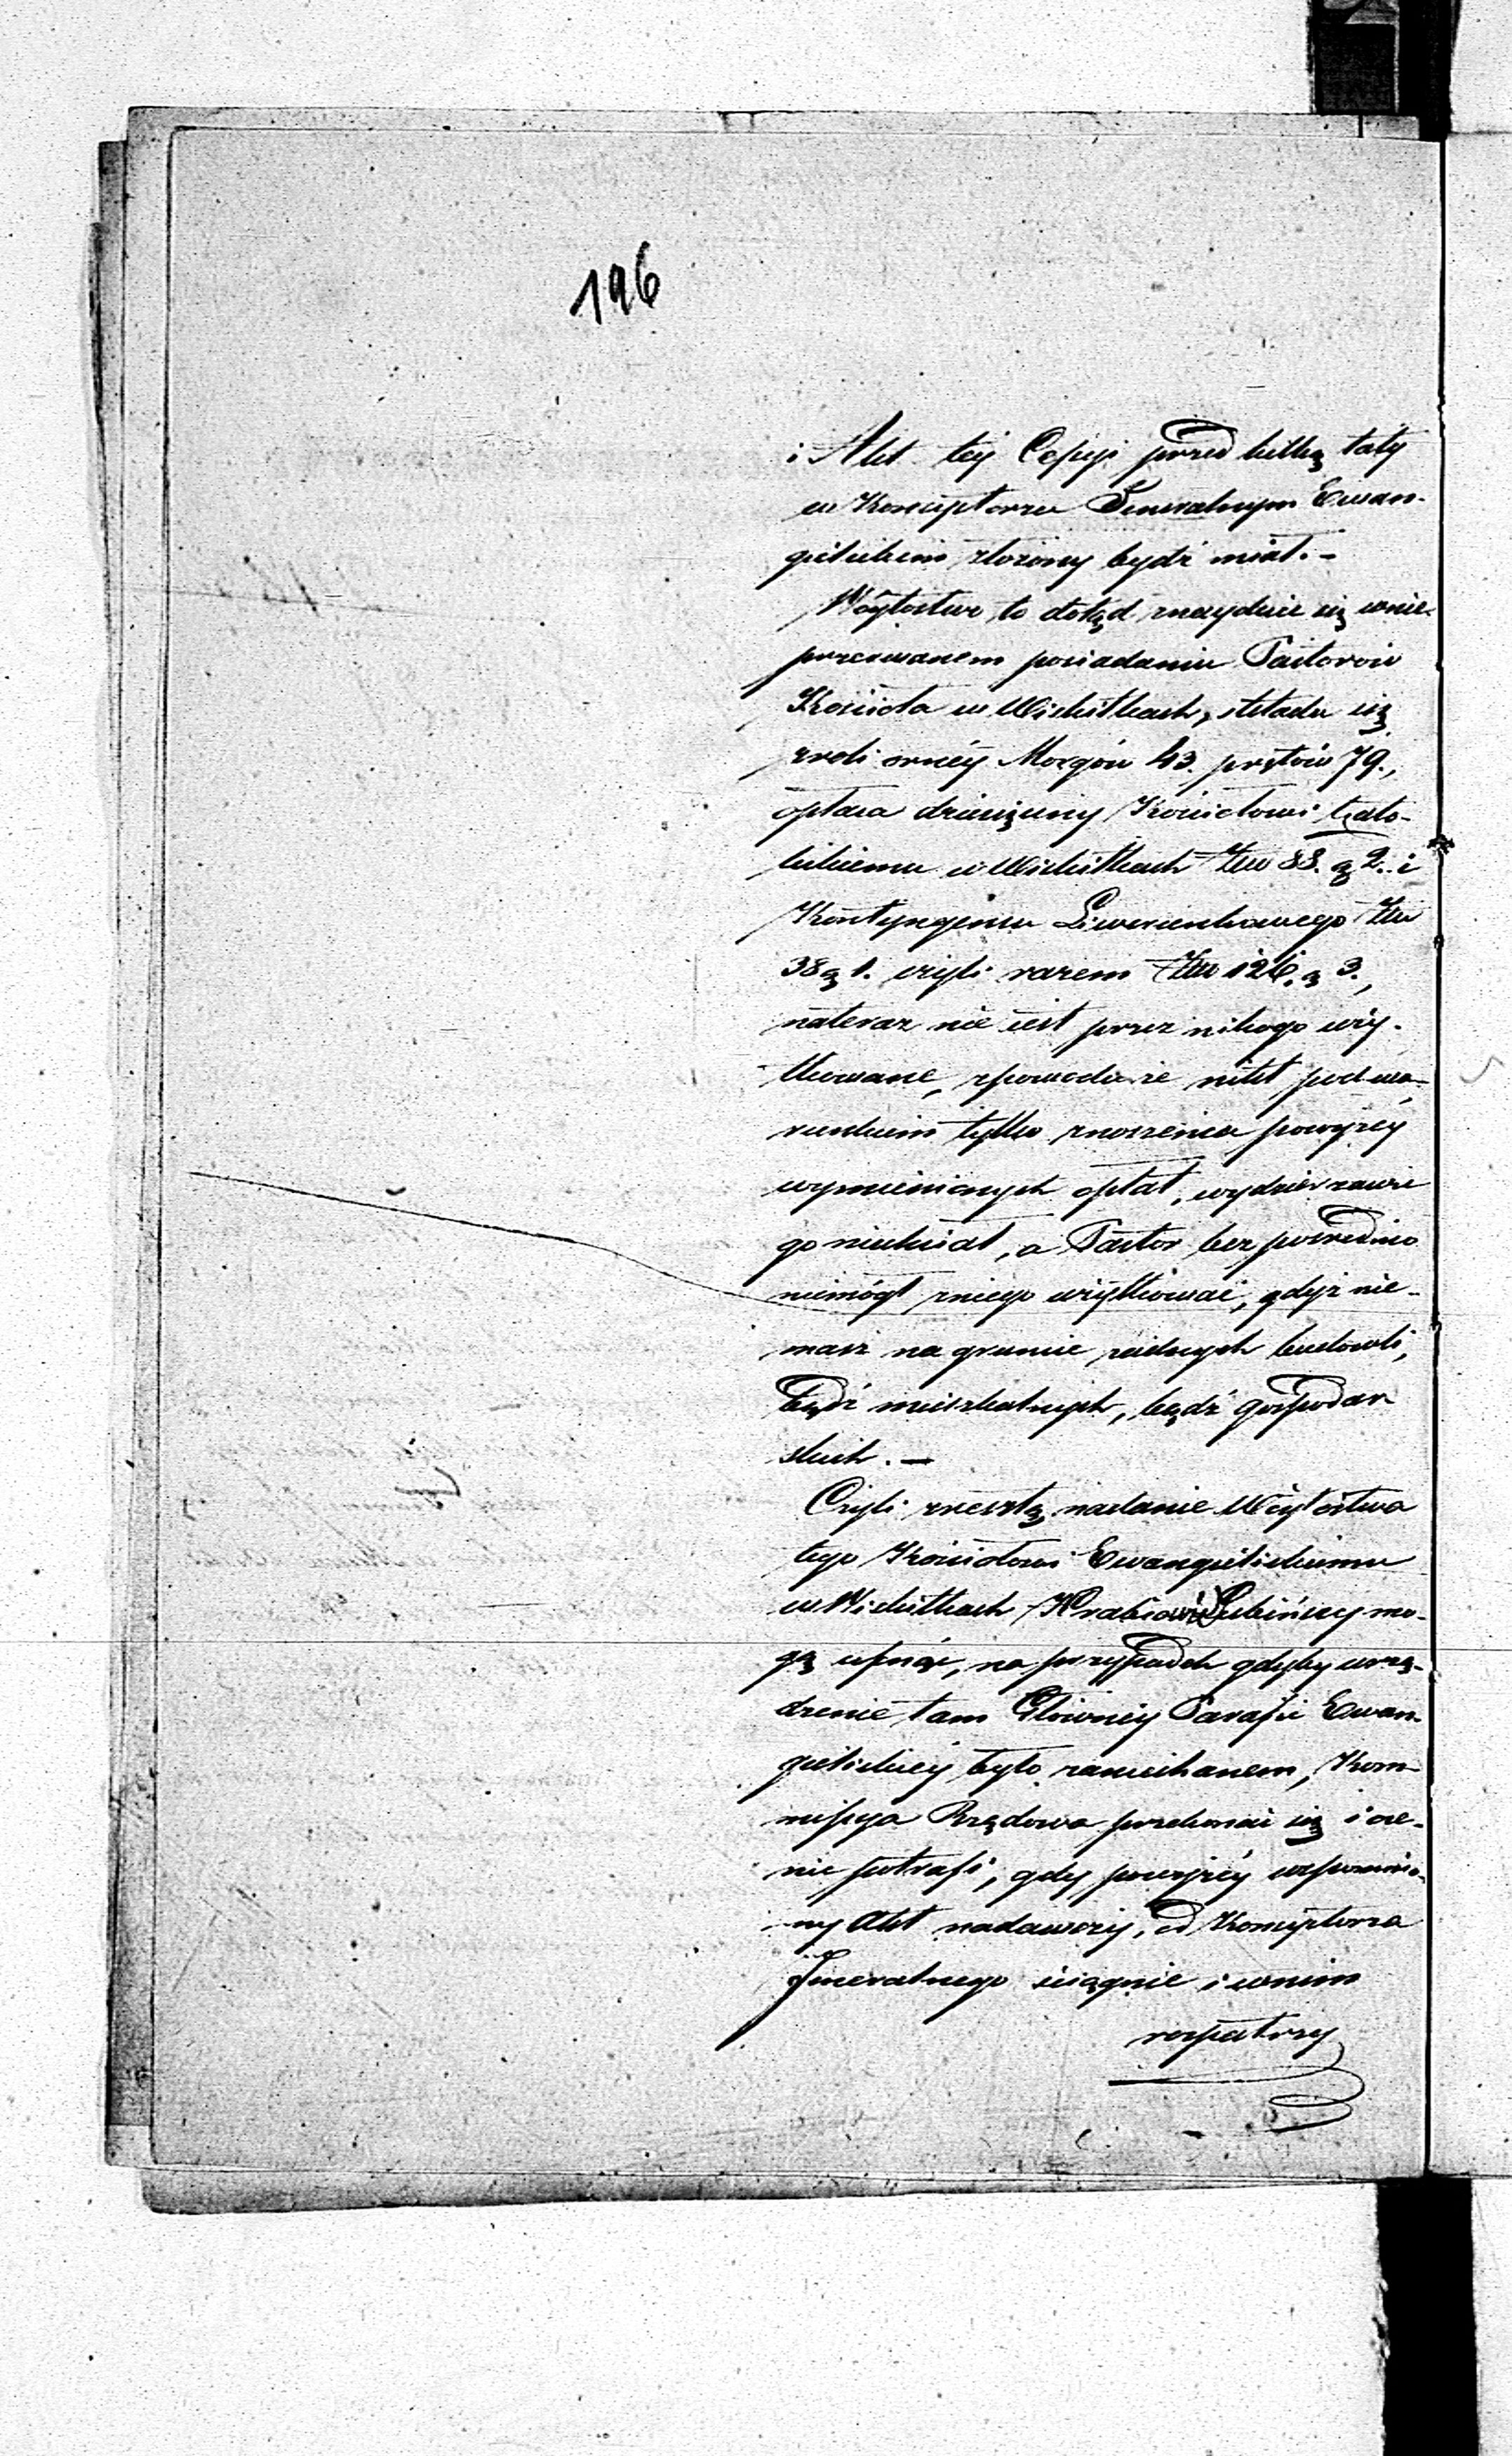 196
i Akt téj Cessyi przed kilką laty
w Konsystorzu Generalnym Ewan-
gielickim złożony bydź miał. -
Wóytostwo to dotąd znayduie się w nie-
przerwanem posiadaniu Pastorów
Kościoła w Wiskitkach, składa się
z roli ornéy Morgów 43. prętów 79.,
opłaca dziesięciny Kościołowi Kato-
lickiemu w Wiskitkach Złp 88. g 2. i
Kontyngensu Liwerunkowego Złp
38 g 1. czyli razem Złp 126. g 3.,
nateraz nie iest przez nikogo uży-
tkowane, z powodu że nikt pod wa-
runkiem tylko znoszenia powyżéy
wymienionych opłat, wydzierżawić
go niechciał, a Pastor bezpośrednio
niemógł z niego użytkować, gdyż nie-
masz na gruncie żadnych budowli,
bądź mieszkalnych, bądź gospodar
skich. -
Czyli zresztą nadanie Wóytostwa
tego Kościołowi Ewangielickiemu
w Wiskitkach Hrabiowie Łubińscy mo-
gą cofnąć, na przypadek gdyby urzą-
dzenie tam Głównéy Parafii Ewan-
gielickiéy było zaniechanem, Kom-
missya Rządowa przekonać się i oce-
nić potrafi, gdy powyżéy wspomnio-
ny Akt nadawczy, od Konsystorza
Generalnego ściągnie i w nim
rozpatrzy